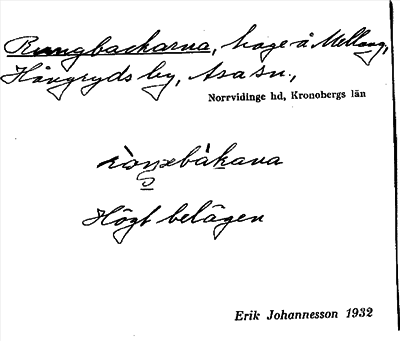 Rungbackarna, hage å Mellang,
Hångryds by, Asa sn.,
Norrvidinge hd, Kronobergs län
Högt belägen
Erik Johannesson 1932